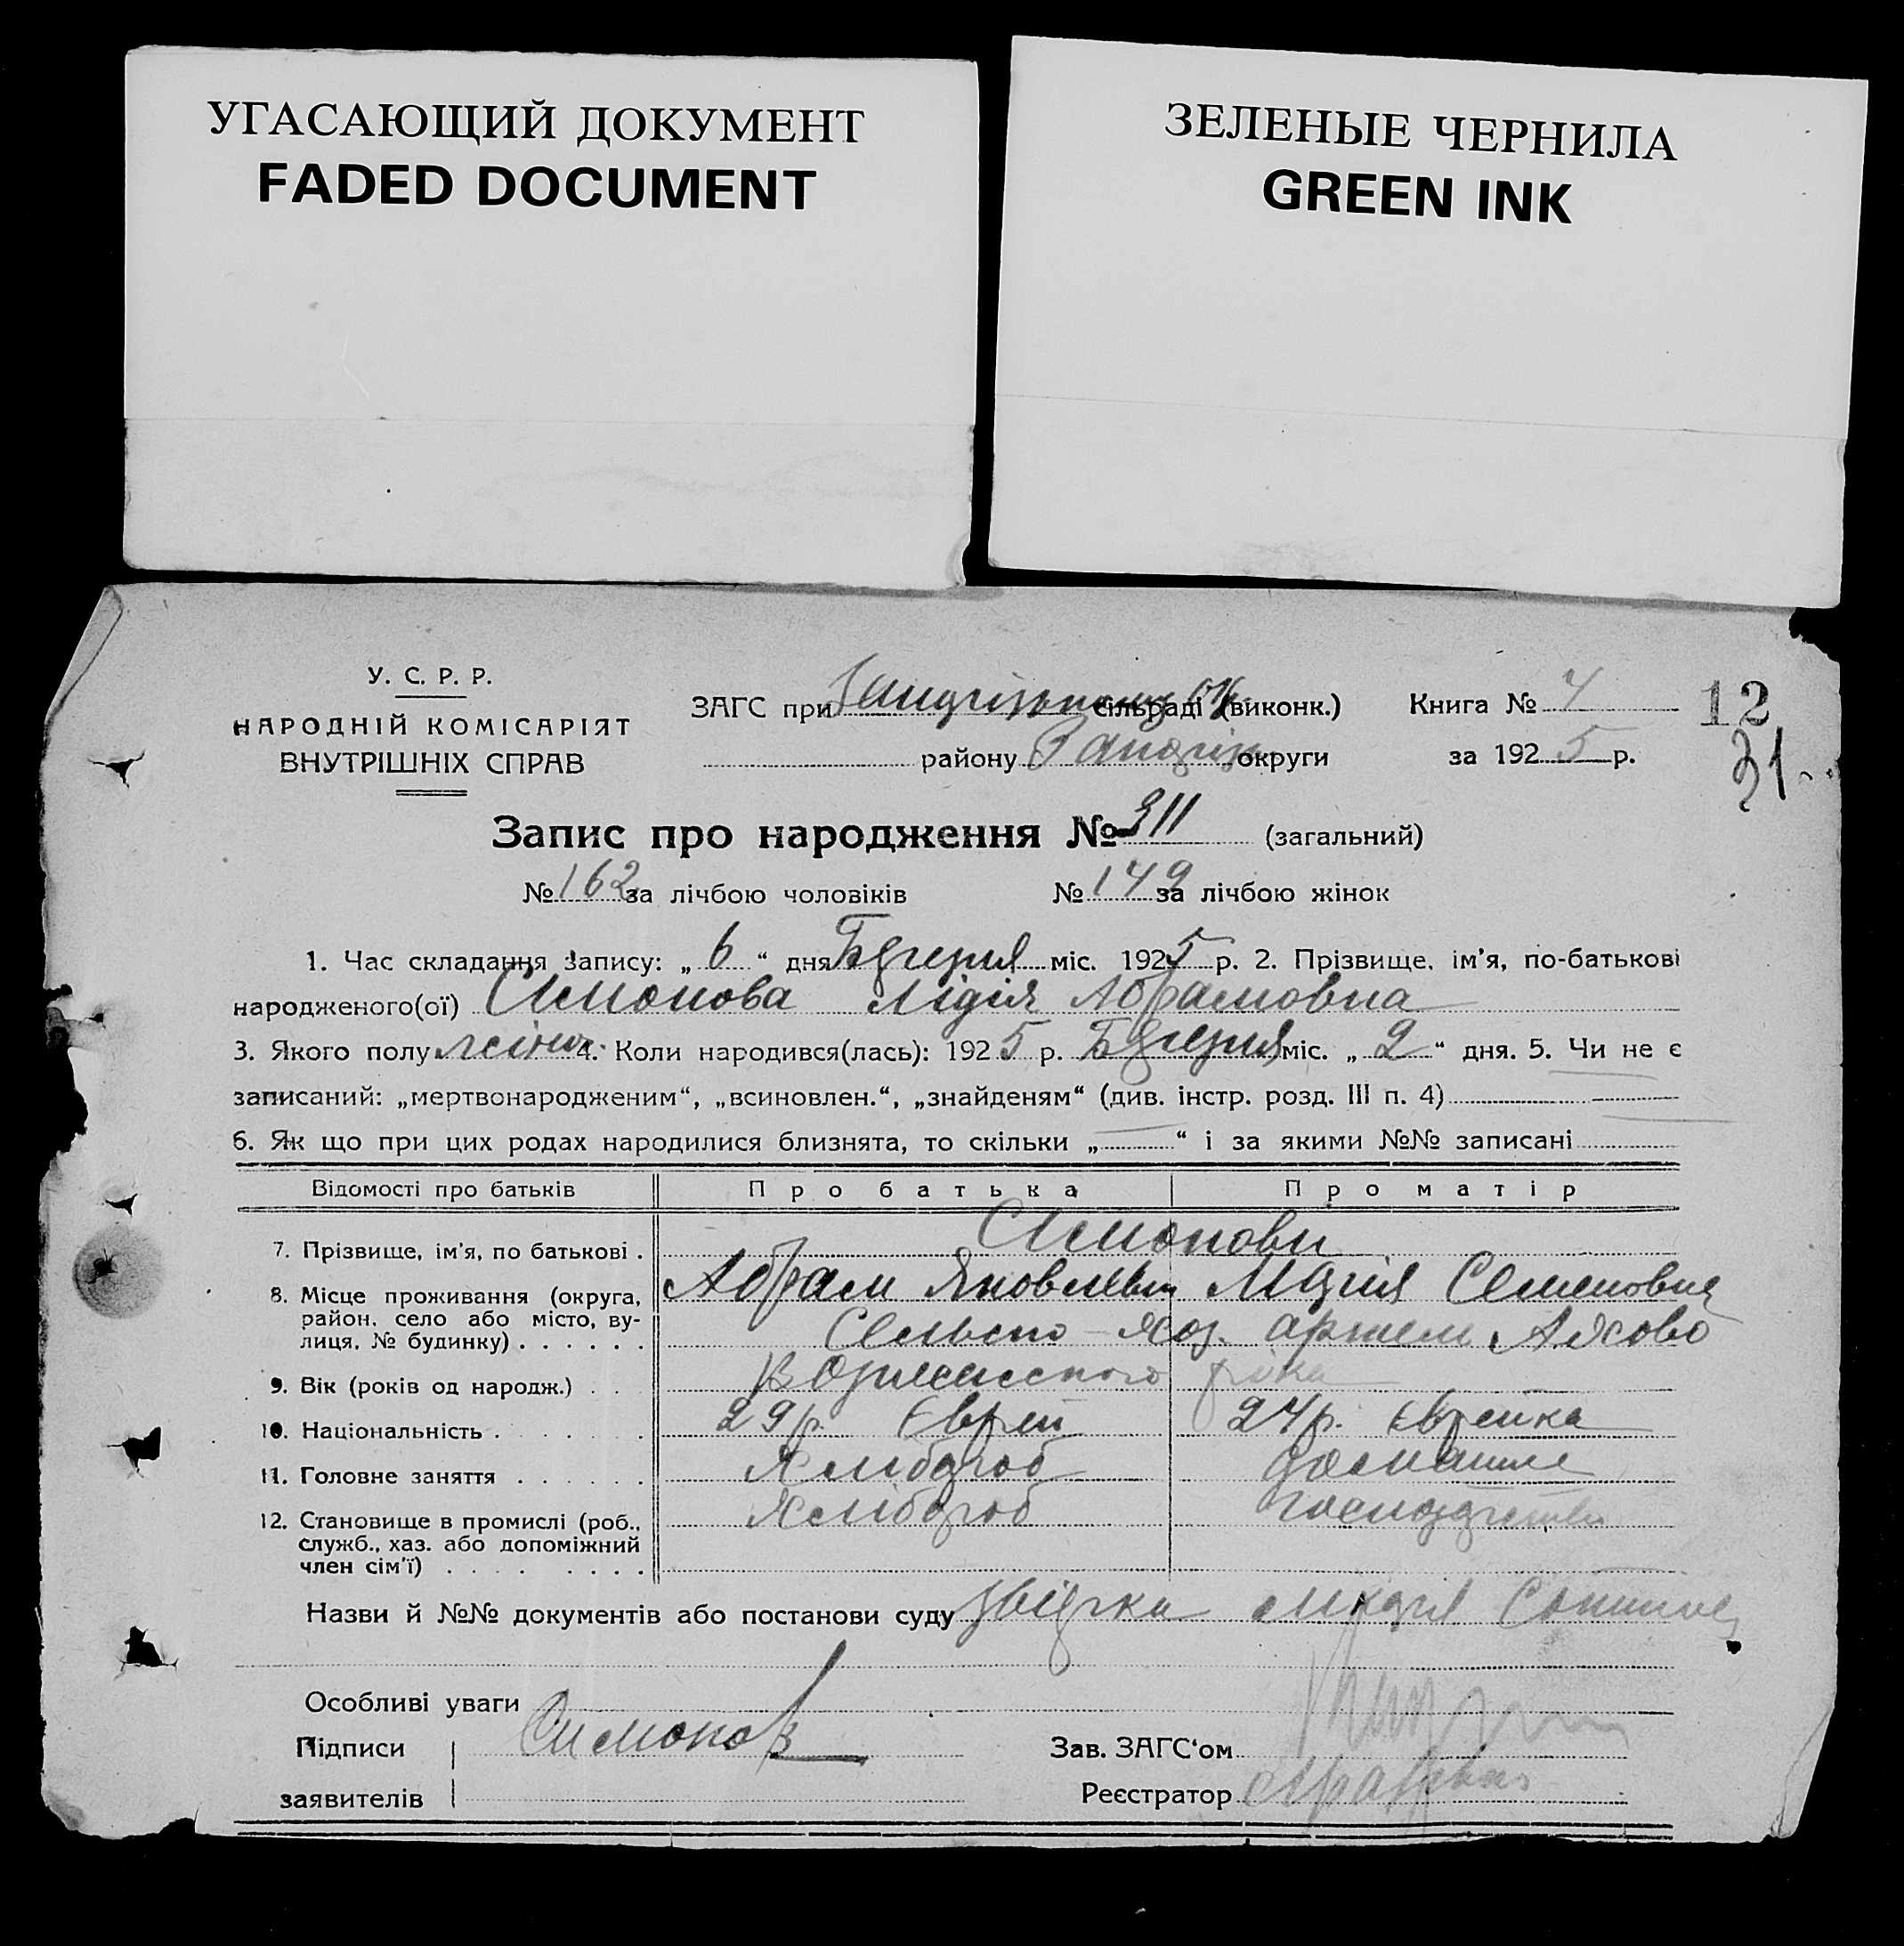 УГАСАЮЩИЙ ДОКУМЕНТ
FADED DOCUMENT
ЗЕЛЕНЫЕ ЧЕРНИЛА
GREEN INK
У. С. Р. Р.
НАРОДНІЙ КОМІСАРІЯТ
ВНУТРІШНІХ СПРАВ
ЗАГС при сільраді (виконк.)
району округи
Книга № 4
за 1925 р.
12
31
Запис про народження № 311 (загальний)
№ 162 за лічбою чоловіків № 149 за лічбою жінок
1. Час складання запису: „ 6 “ дня міс. 1925 р. 2. Прізвище, ім'я, по-батькові
народженого(ої) Симонова Лідія Абрамовна
3. Якого полу жіноч. 4. Коли народився(лась): 1925 р. міс. „ 2 “ дня. 5. Чи не є
записаний: „мертвонародженим“, „всиновлен.“, „знайденям“ (див. інстр. розд. III п. 4)
6. Як що при цих родах народилися близнята, то скільки „ — “ і за якими №№ записані
Відомості про батьків Про батька Про матір
7. Прізвище, ім'я, по батькові . Симонови
8. Місце проживання (округа, район, село або місто, вулиця, № будинку) . . . . . . Абрам Яковлевич Марія Семеновна
Сельско-хоз. артель
9. Вік (років од народж.) . .
10. Національність . . . . . 29 р. Єврей 24 р. Єврейка
11. Головне заняття . . . . . Хлібороб домашнє
12. Становище в промислі (роб., Хлібороб господарство
служб., хаз. або допоміжний
член сім'ї) . . . . . . . .
Назви й №№ документів або постанови суду
Особливі уваги
Підписи Симонов Зав. ЗАГС'ом
заявителів Реєстратор